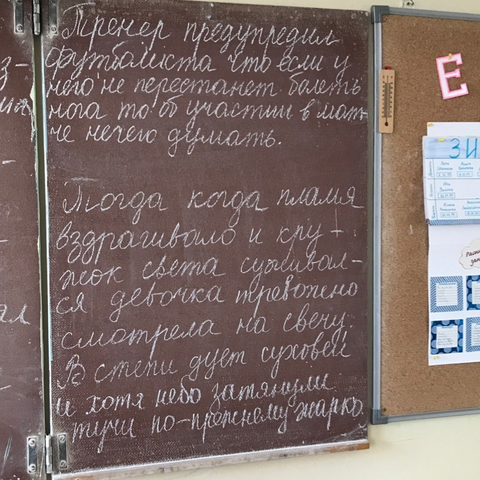 Тренер предупредил
футболиста что если у
него не перестанет болеть
нога то об участии в мат
че нечего думать.
Тогда когда пламя
вздрагивало и кру
жок света суживал-
ся девочка тревожно
смотрела на свечу.
В степи дует суховей
и хотя небо затянули
тучи по-прежнему жарко.
Е
ЗИ